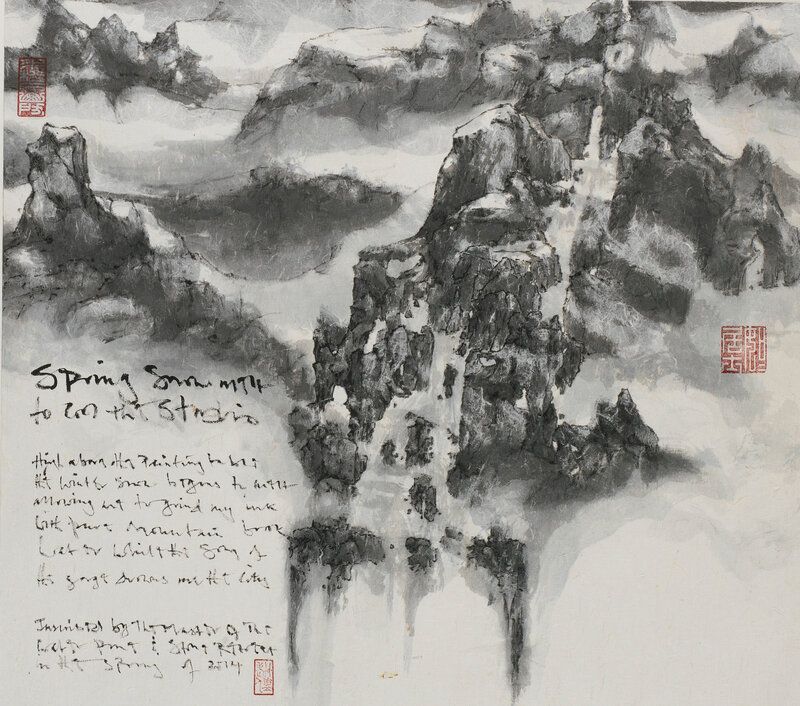 Spring Snow melt
to cool the Studio
High above the Painting
the winter snow begins to melt
allowing me to grind my ink
with pure mountain brook
water whilst the Song of
the gorge drowns out the city
Inscribed by The Master of The
Water Pine & Stone Retreat
in the Spring of 2014